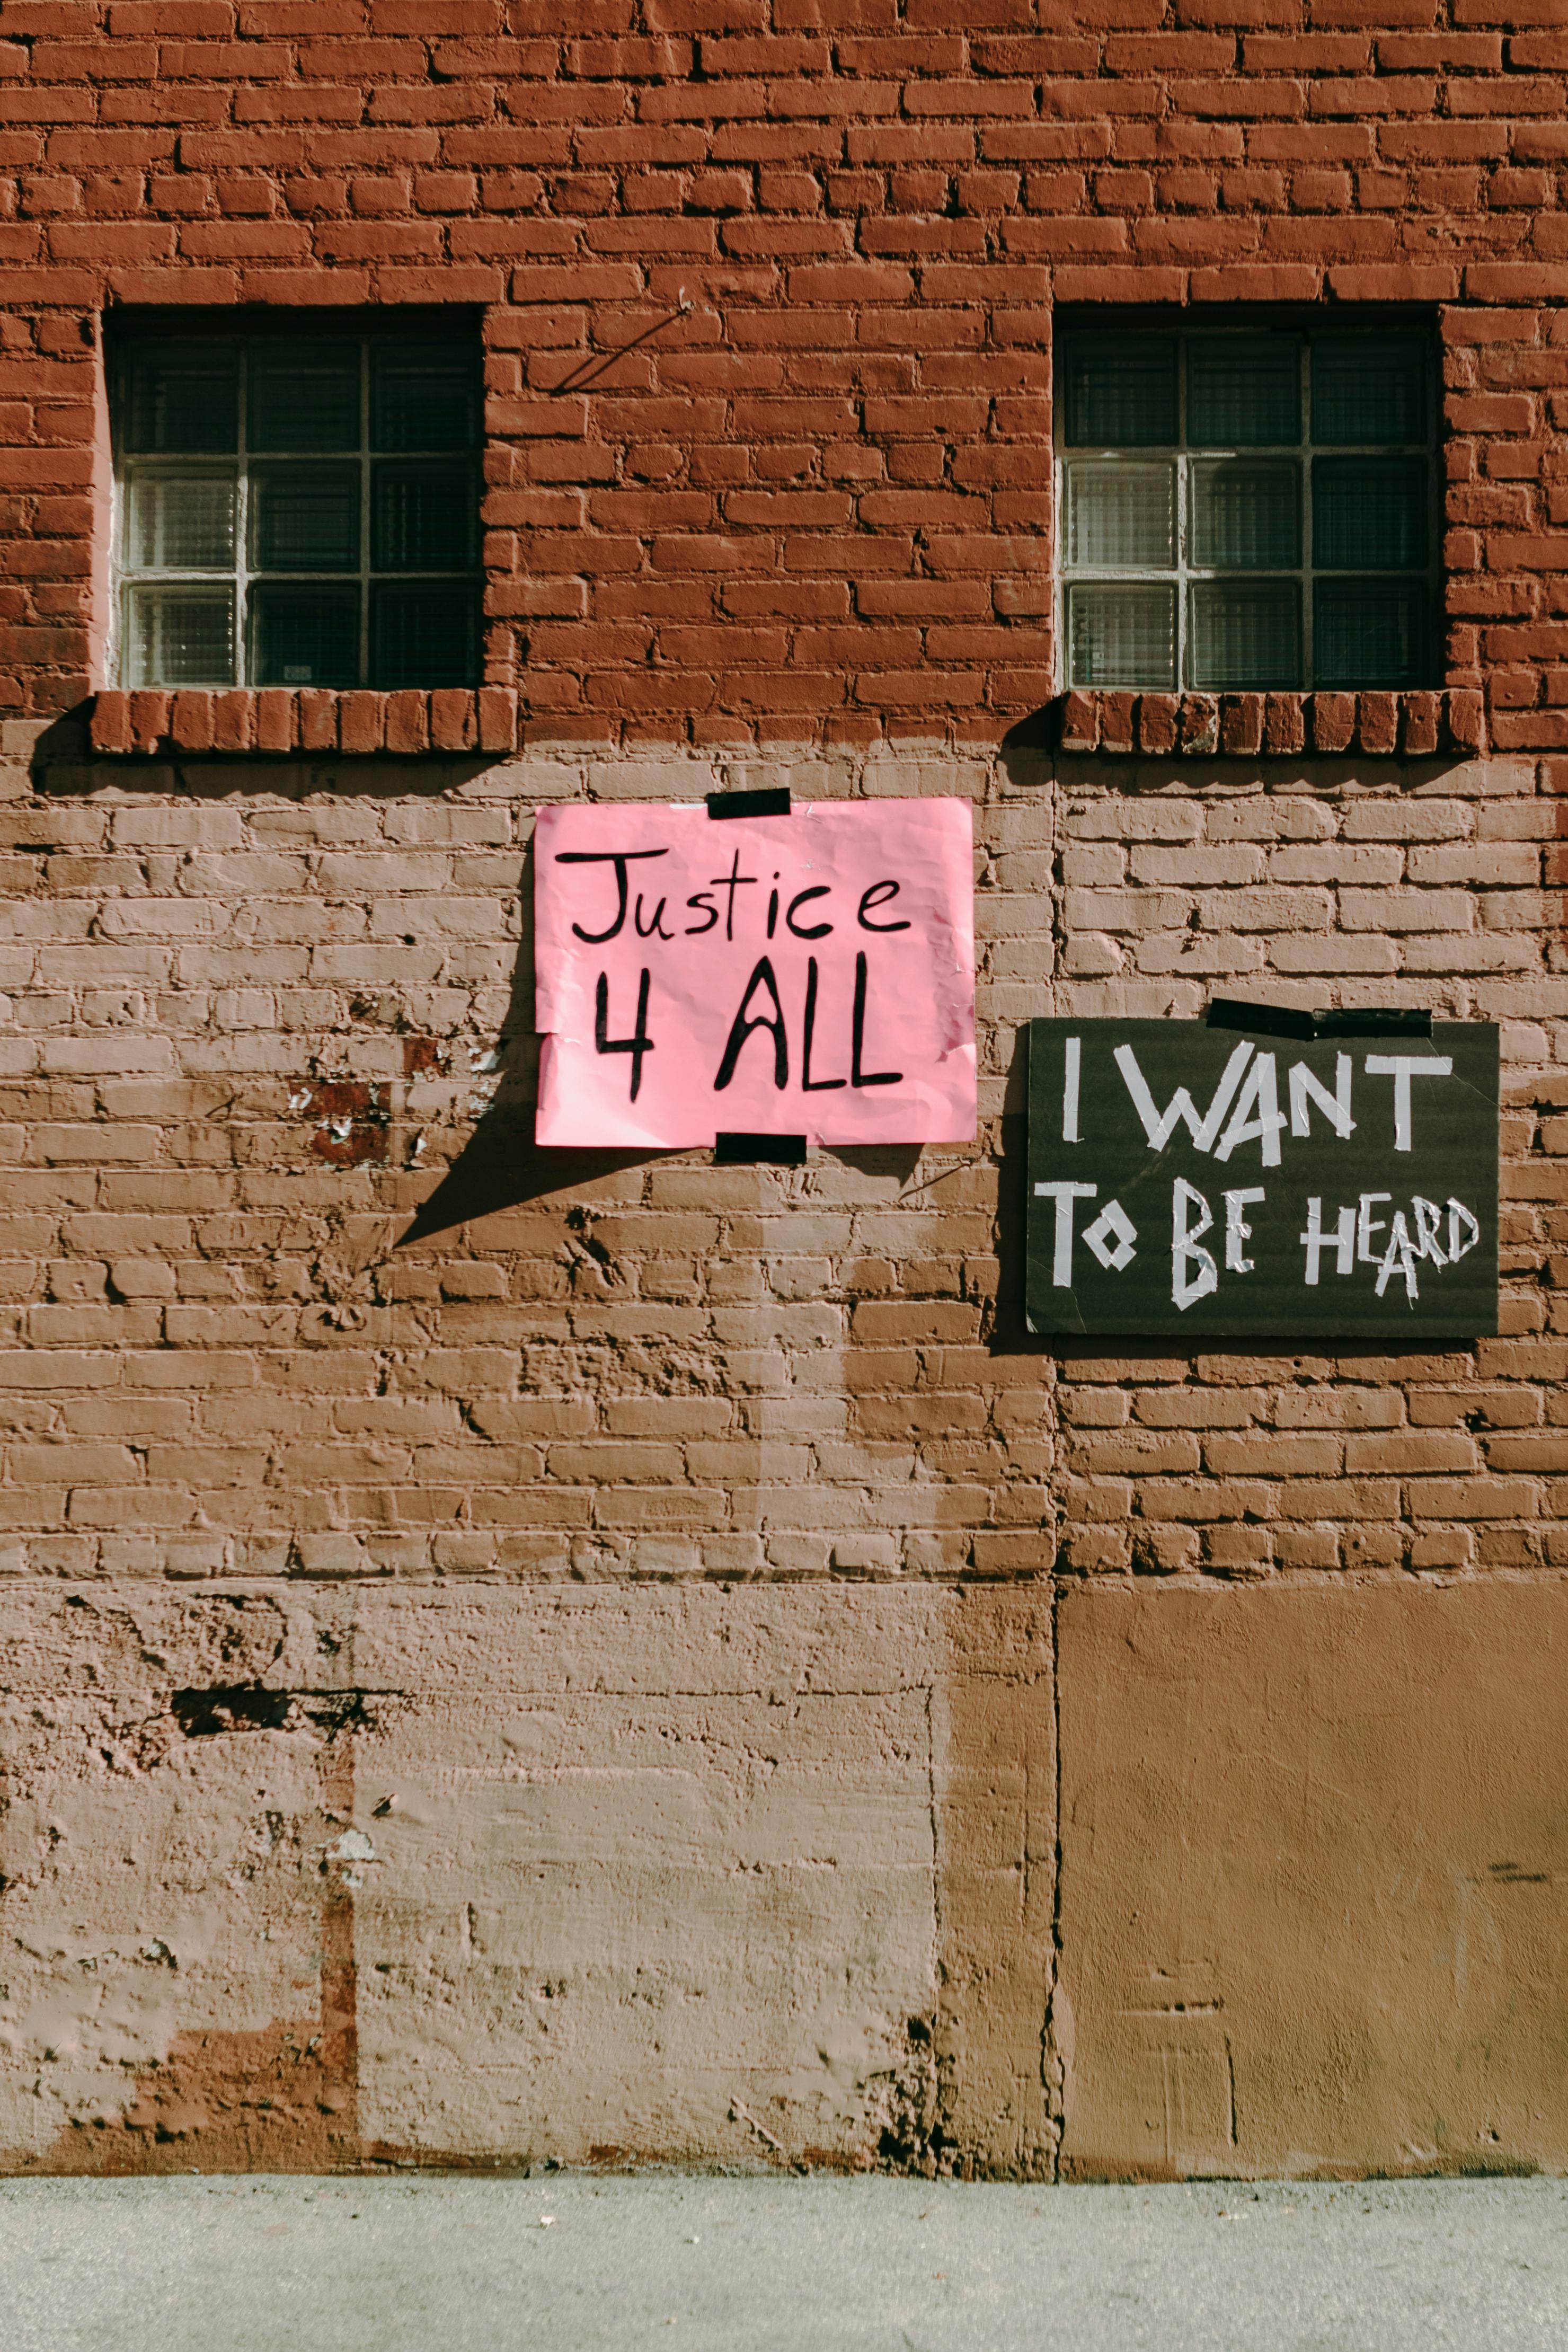 Justice
4 ALL
I WANT
TO BE HEARD